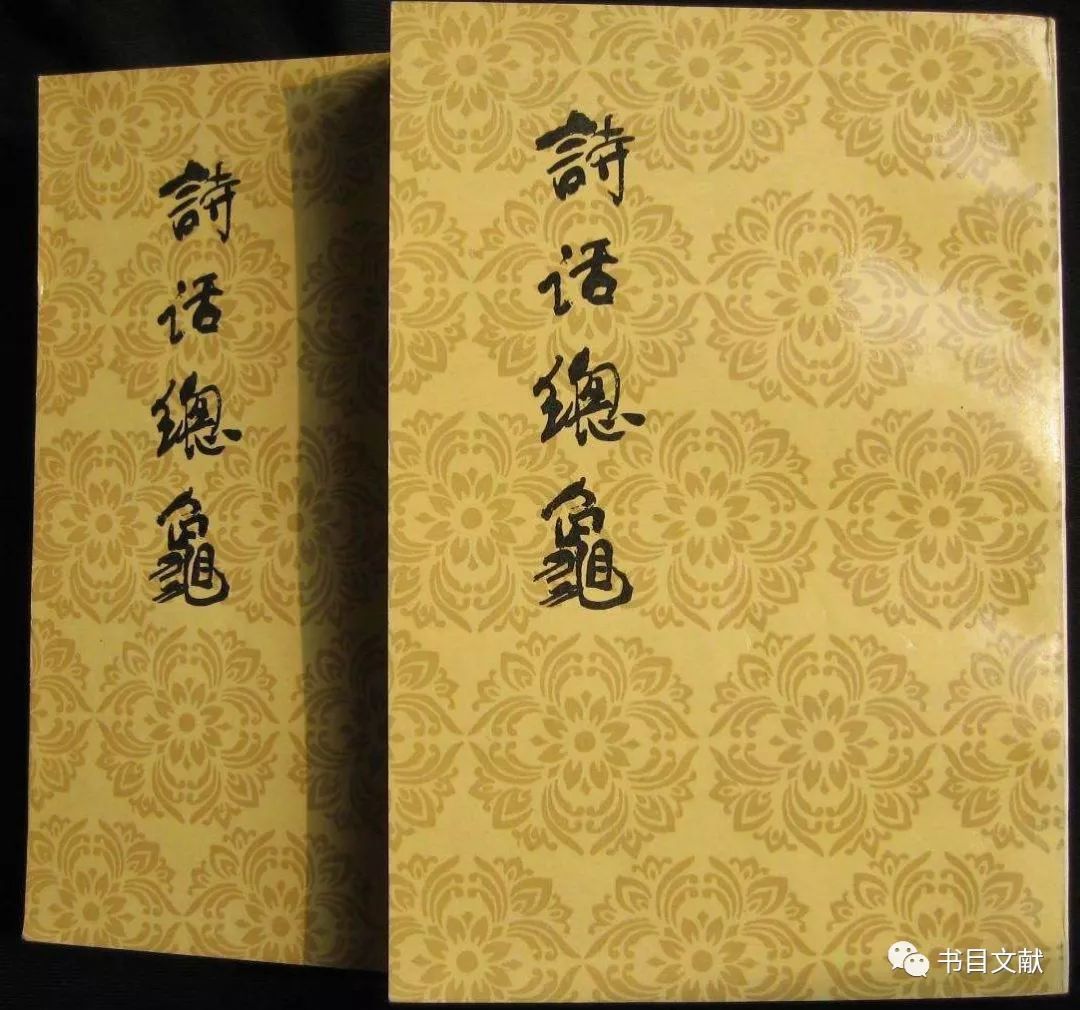 詩话總龜
詩话總龜
书目文献